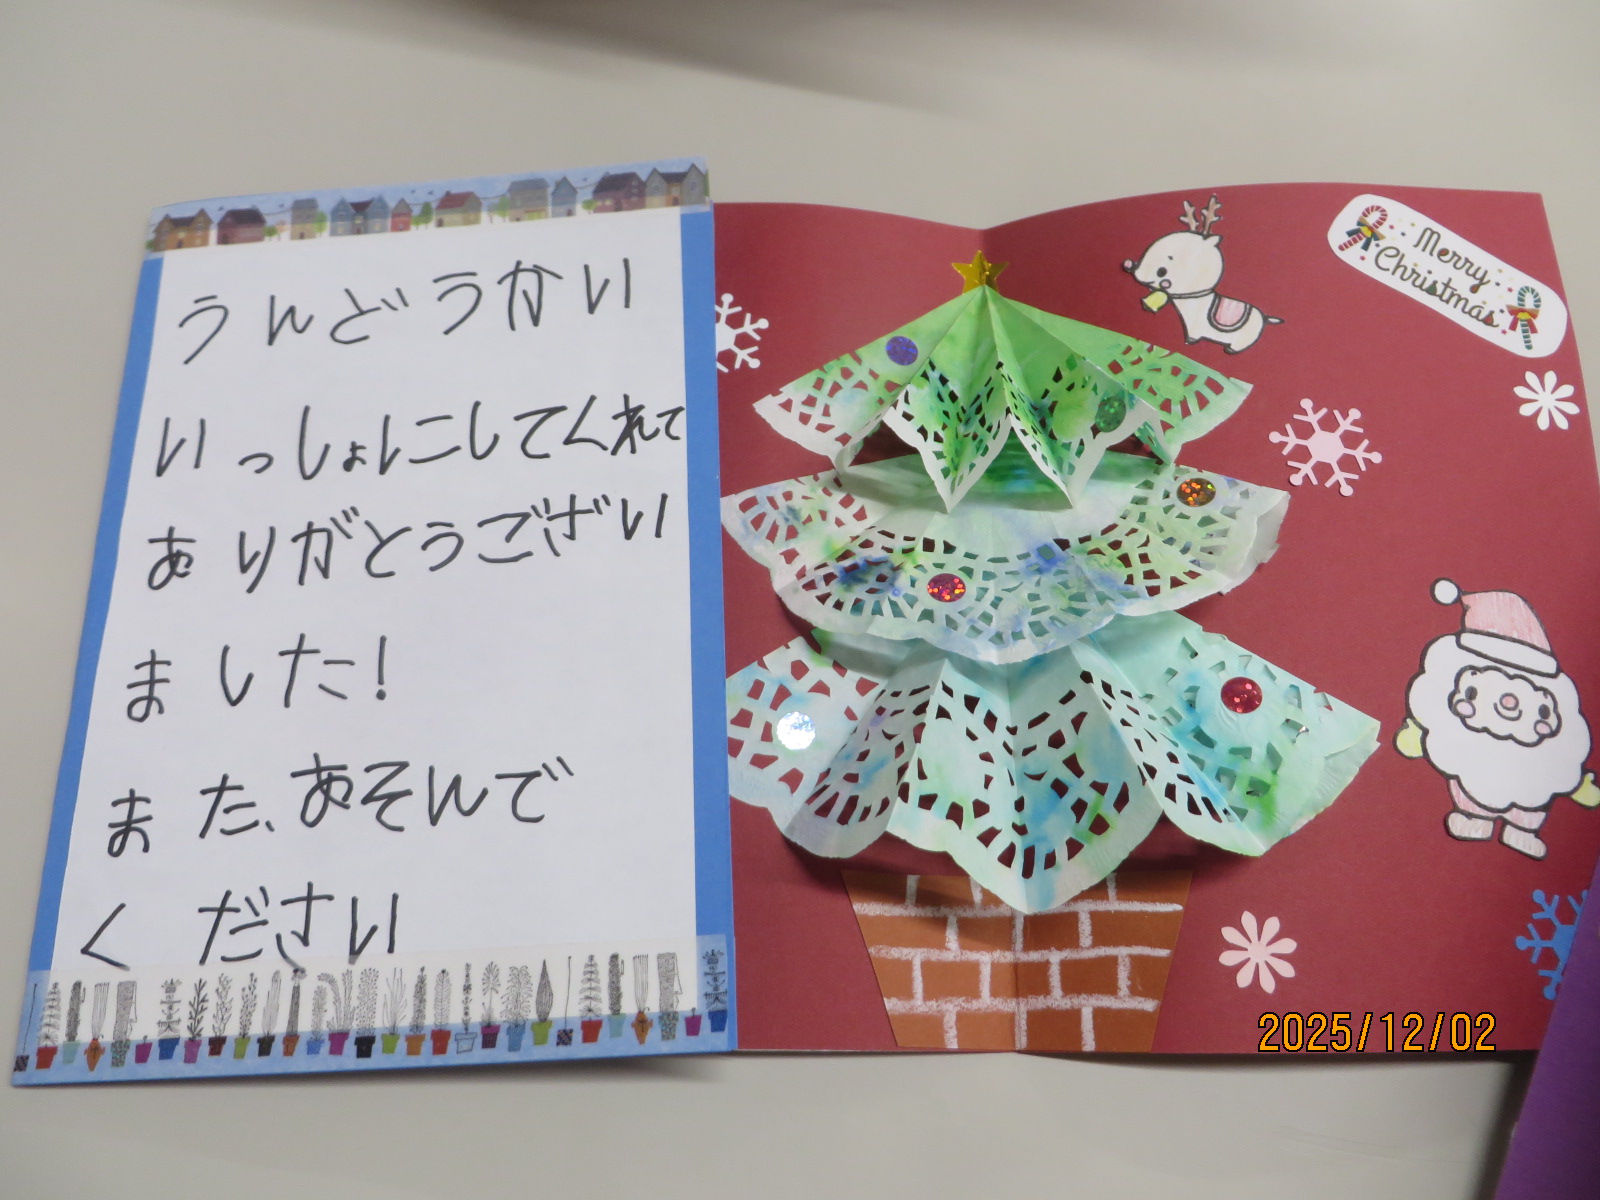 うんどうかい
いっしょにしてくれて
ありがとうござい
ました!
また、あそんで
ください
Merry
Christmas
2025/12/02